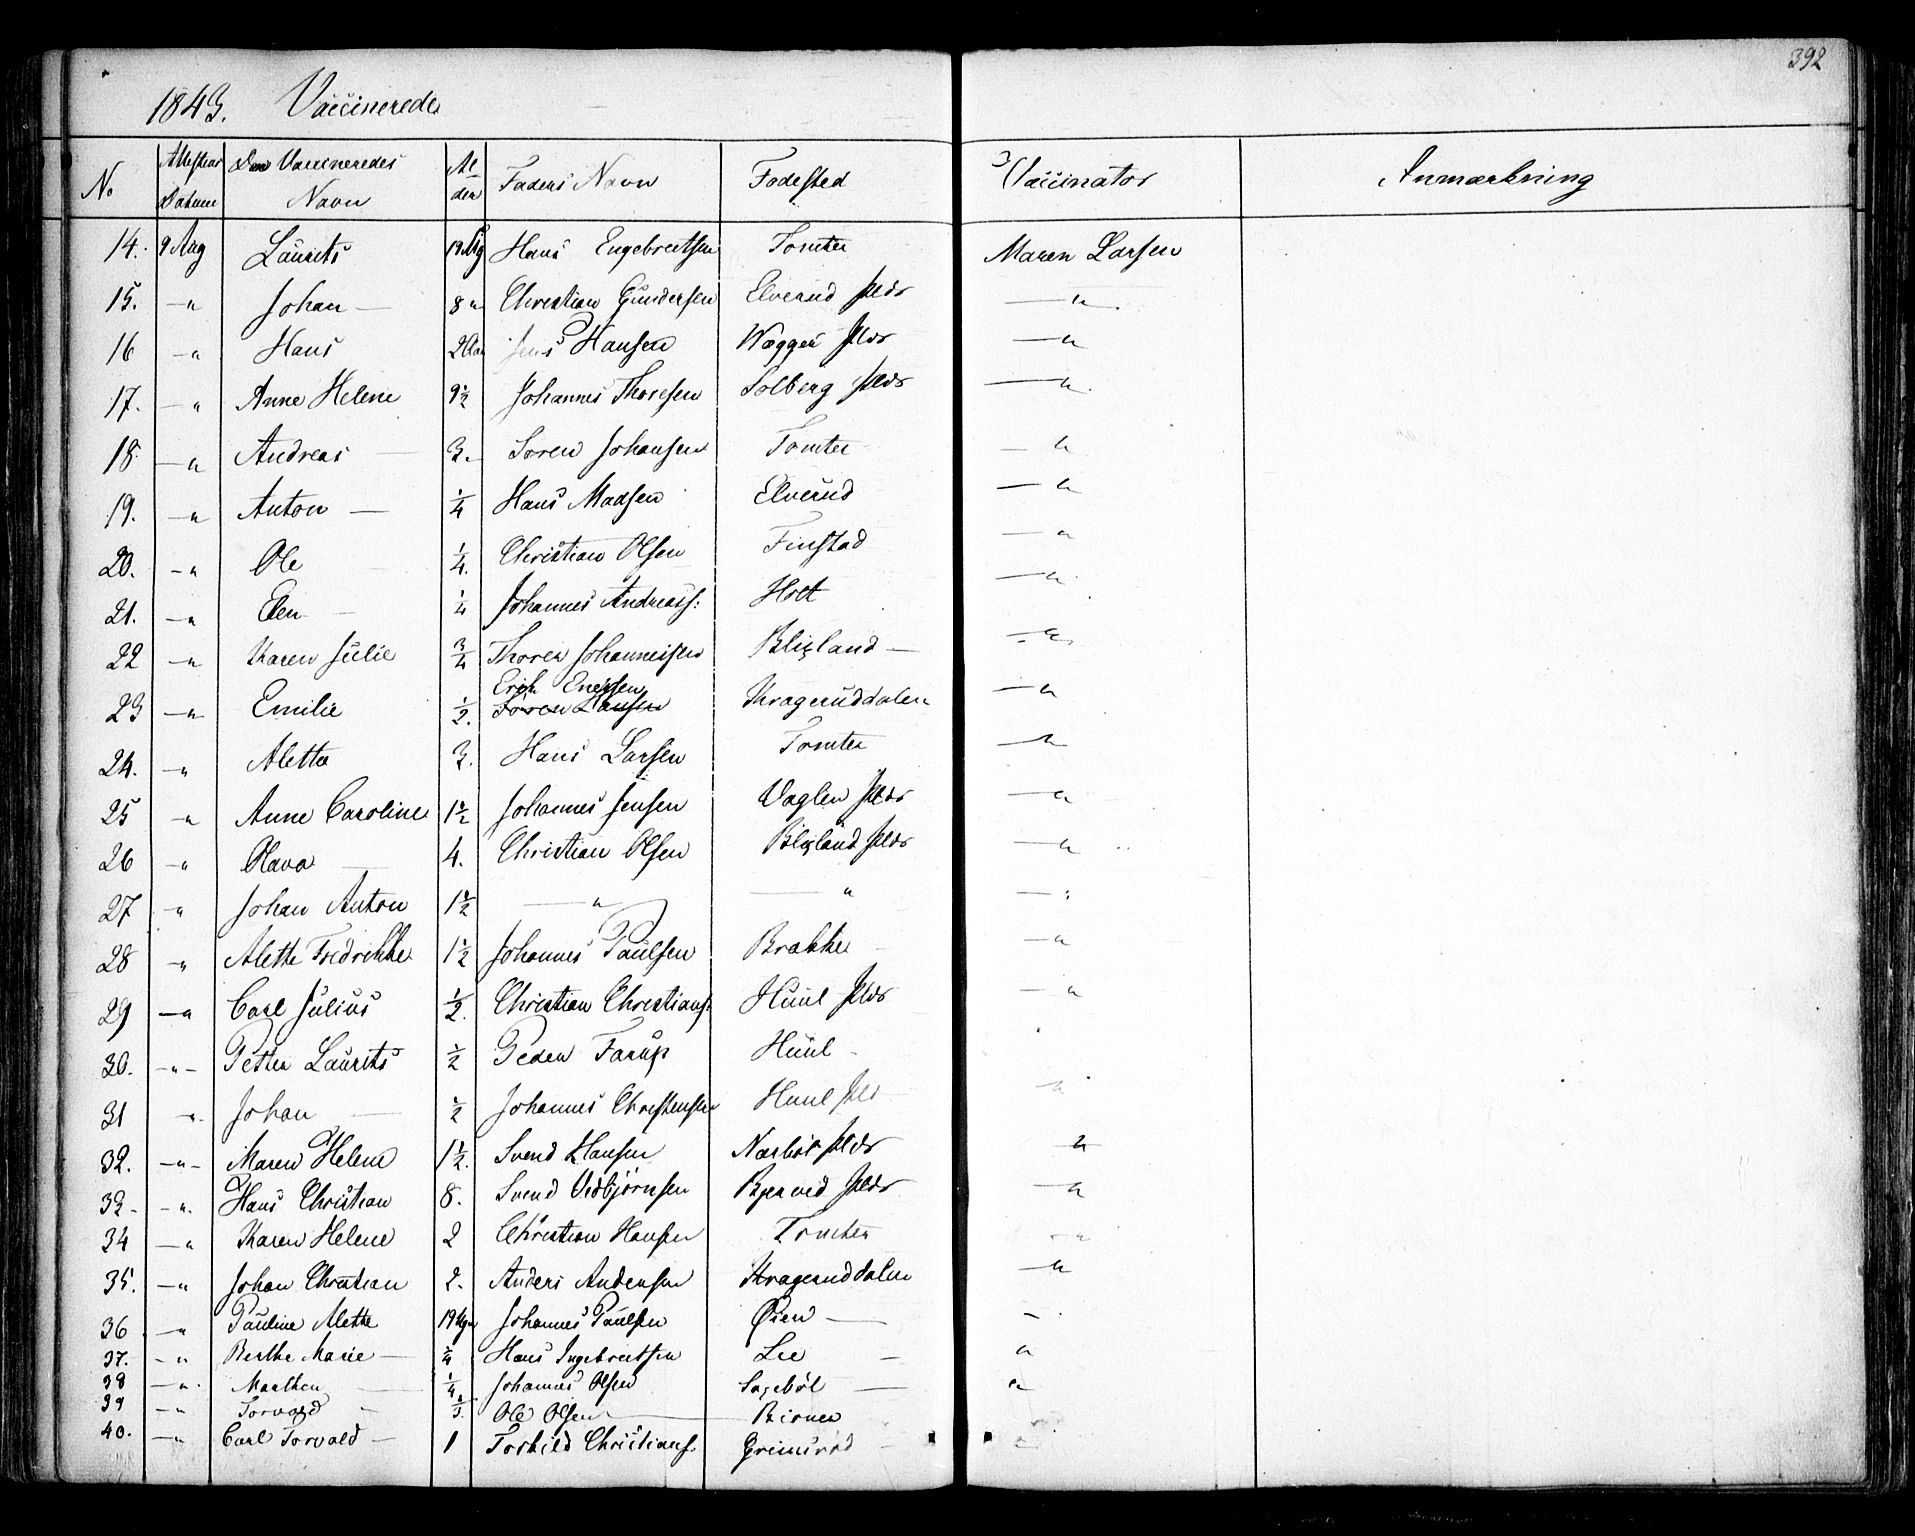 392
1843. Vaccinerede
No Attestens Datum Den Vaccineredes Navn Alder Faders Navn Fødested Vaccinator Anmærkning
14. 9 Aug Laurits 19 Hans Engebretsen Tomter Maren Larsen
15. — " Johan — 8 " Christian Gundersen Elverud — "
16 — " Hans Jens Hansen — "
17. — " Anne Helene 9½ Johannes Thoresen Solberg — "
18 — " Andreas — 3. Soren Johansen Tomter — "
19. — " Anton — ¼ Hans Madsen Elverud — "
20. — " Ole ¼. Christian Olsen Finstad — "
21. — " Elen — ¼ Johannes Andreass: Holt — "
22 — " Karen Julie ¾ Thorer Johannesen — "
23 — " Emilie ½. Erik Enersen Krageruddalen — "
24. — " Alette 3. Hans Larsen Tomter — "
25 — " Anne Caroline 1½ Johannes Jensen Vaglen — "
26 " Olava — 4. Christian Olsen — "
27 " Johan Anton 1½ — " — " — "
28 — " Alette Fredrikke 1½ Johannes Paulsen Brakke — "
29 — " Carl Julius ½. Christian Christians: Huul — "
30. — " — Petter Laurits ½ Peder Farup Huul
31 " Johan — ½ Johannes Christensen Huul "
32. — " — Maren Helene 1½. Svend Hansen — "
33. — " Hans Christian 8. Svend Vidbjörnsen — "
34 — " Karen Helene 2 Christian Hansen Tomter "
35. — " Johan Christian 2. Anders Andersen Krageruddalen — "
36 — " Pauline Alette 19 Johannes Paulsen Öien — —
37. — " Berthe Marie — Hans Ingebretsen Lee — "
38 — " Marthea — ¼ Johannes Olsen Sagebøl — "
39 — " Torvald — Ole Olsen
40. — " Carl Torvald — 1 Torkild Christians: Grimsrød — "